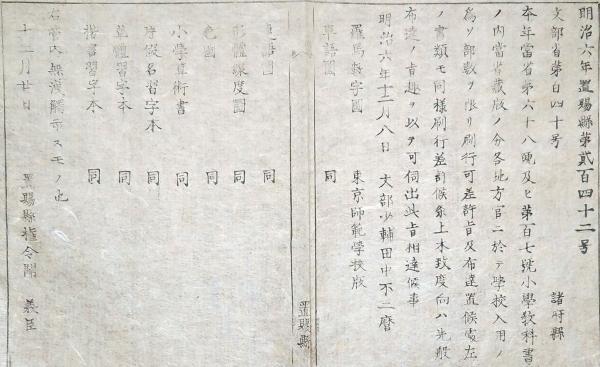 明治六年置賜縣第貳百四十二号
文部省第百四十号
諸府縣
本年當省第六十八號及ヒ第百七號小學教科書
ノ内當省蔵版ノ分各地方官ニ於テ學校入用ノ
為ソ部数ヲ限リ刷行可差許旨及布達置候處左
ノ書類モ同様刷行差許候条上木致度向ハ先般
布達ノ旨趣ヲ以テ可伺出此旨相達候事
明治六年十二月八日 文部少輔田中不二麿
羅馬数字圖 東京師範學校版
單語圖 同
連語圖 同
形體線度圖 同
色圖 同
小學算術書 同
片假名習字本 同
草體習字本 同
楷書習字本 同
右管内無漢觸示スモノ也
十二月廿日 置賜縣權令關義臣
置賜縣